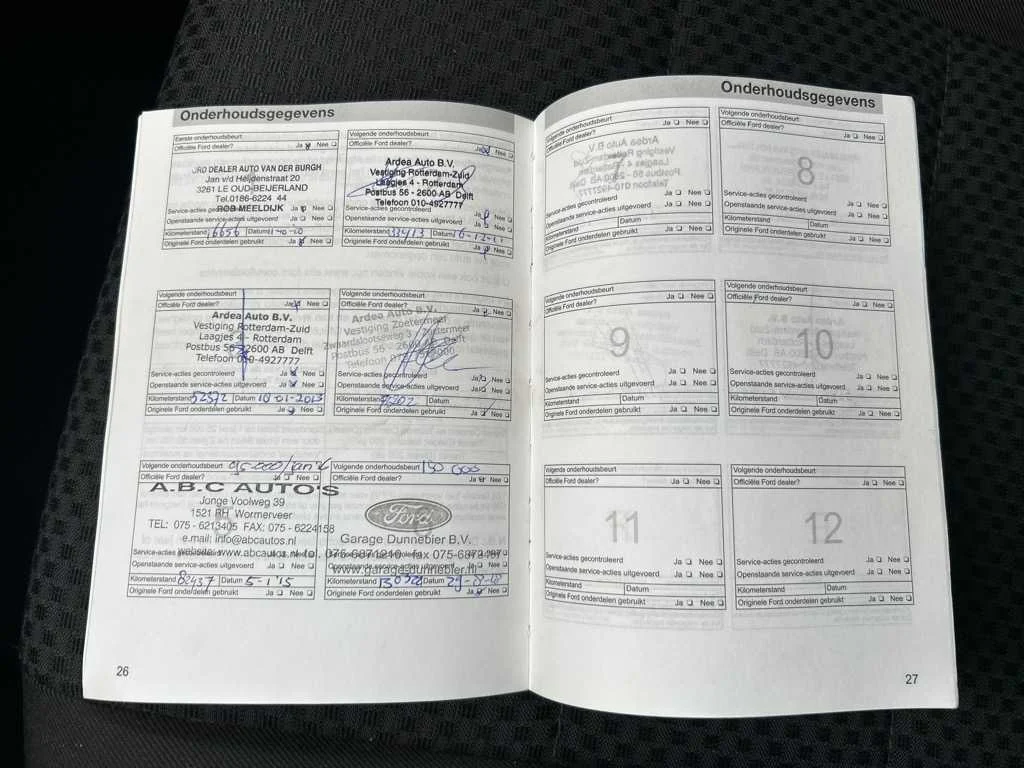 Onderhoudsgegevens
Eerste onderhoudsbeurt
Officiële Ford dealer? Ja Nee
DEALER AUTO VAN DER BURGH
Jan v/d Heijdenstraat 20
3261 LE OUD-BEIJERLAND
Tel.0186-6224 44
ROB MEELDIJK
Service-acties gecontroleerd Ja Nee
Openstaande service-acties uitgevoerd Ja Nee
Kilometerstand 16656 Datum
Originele Ford onderdelen gebruikt Ja Nee
Volgende onderhoudsbeurt
Officiële Ford dealer? Ja Nee
Ardea Auto B.V.
Vestiging Rotterdam-Zuid
Laagjes 4 - Rotterdam
Postbus 56 - 2600 AB Delft
Telefoon 010-4927777
Service-acties gecontroleerd Ja Nee
Openstaande service-acties uitgevoerd Ja Nee
Kilometerstand 33413 Datum 16-12-11
Originele Ford onderdelen gebruikt Ja Nee
Volgende onderhoudsbeurt
Officiële Ford dealer? Ja Nee
Ardea Auto B.V.
Vestiging Rotterdam-Zuid
Laagjes 4 - Rotterdam
Postbus 56 - 2600 AB Delft
Telefoon 010-4927777
Service-acties gecontroleerd Ja Nee
Openstaande service-acties uitgevoerd Ja Nee
Kilometerstand 52572 Datum 10-01-2013
Originele Ford onderdelen gebruikt Ja Nee
Volgende onderhoudsbeurt
Officiële Ford dealer? Ja Nee
Ardea Auto B.V.
Vestiging Zoetermeer
Zwaardslootseweg 3 - Zoetermeer
Postbus 56 - 2600 AB Delft
Telefoon 079
Service-acties gecontroleerd Ja Nee
Openstaande service-acties uitgevoerd Ja Nee
Kilometerstand Datum
Originele Ford onderdelen gebruikt Ja Nee
Volgende onderhoudsbeurt 95.000/jan'16
Officiële Ford dealer? Ja Nee
A.B.C AUTO'S
Jonge Voolweg 39
1521 RH Wormerveer
TEL: 075 - 6213405 FAX: 075 - 6224158
e.mail: info@abcautos.nl
Service-acties gecontroleerd
website: www.abcautos.nl
Openstaande service-acties uitgevoerd Ja Nee
Kilometerstand 82437 Datum 5-1'15
Originele Ford onderdelen gebruikt Ja Nee
Volgende onderhoudsbeurt 150 000
Officiële Ford dealer? Ja Nee
Ford
Garage Dunnebier B.V.
tel. 075-6871210 fax 075-6872487
www.garagedunnebier.nl
Kilometerstand Datum
Originele Ford onderdelen gebruikt Ja Nee
26
Onderhoudsgegevens
Volgende onderhoudsbeurt
Officiële Ford dealer? Ja Nee
Service-acties gecontroleerd Ja Nee
Openstaande service-acties uitgevoerd Ja Nee
Kilometerstand Datum
Originele Ford onderdelen gebruikt Ja Nee
Volgende onderhoudsbeurt
Officiële Ford dealer? Ja Nee
8
Service-acties gecontroleerd Ja Nee
Openstaande service-acties uitgevoerd Ja Nee
Kilometerstand Datum
Originele Ford onderdelen gebruikt Ja Nee
Volgende onderhoudsbeurt
Officiële Ford dealer? Ja Nee
9
Service-acties gecontroleerd Ja Nee
Openstaande service-acties uitgevoerd Ja Nee
Kilometerstand Datum
Originele Ford onderdelen gebruikt Ja Nee
Volgende onderhoudsbeurt
Officiële Ford dealer? Ja Nee
10
Service-acties gecontroleerd Ja Nee
Openstaande service-acties uitgevoerd Ja Nee
Kilometerstand Datum
Originele Ford onderdelen gebruikt Ja Nee
Volgende onderhoudsbeurt
Officiële Ford dealer? Ja Nee
11
Service-acties gecontroleerd Ja Nee
Openstaande service-acties uitgevoerd Ja Nee
Kilometerstand Datum
Originele Ford onderdelen gebruikt Ja Nee
Volgende onderhoudsbeurt
Officiële Ford dealer? Ja Nee
12
Service-acties gecontroleerd Ja Nee
Openstaande service-acties uitgevoerd Ja Nee
Kilometerstand Datum
Originele Ford onderdelen gebruikt Ja Nee
27